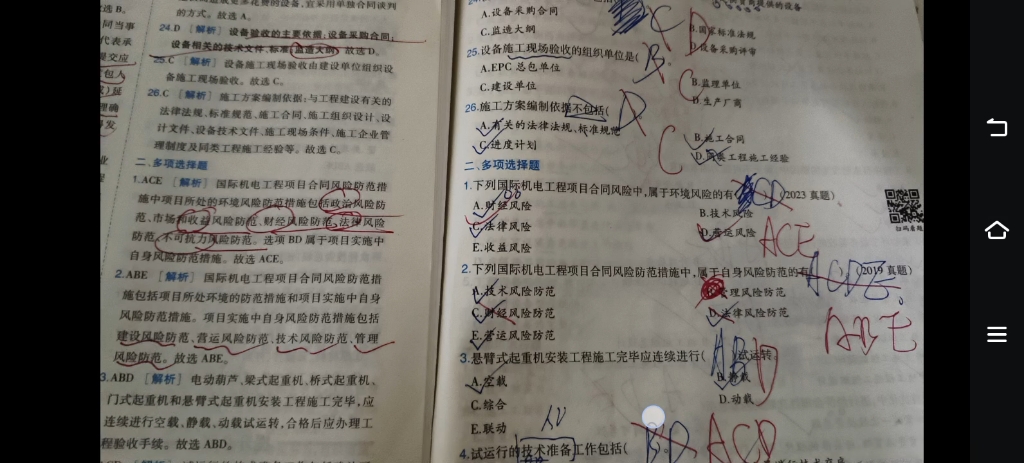 的方式。故选A。
24.D [解析] 设备验收的主要依据:设备采购合同,
设备相关的技术文件、标准,监造大纲。故选D。
25.C [解析] 设备施工现场验收由建设单位组织设
备施工现场验收。故选C。
26.C [解析] 施工方案编制依据:与工程建设有关的
法律法规、标准规范、施工合同、施工组织设计、设
计文件、设备技术文件、施工现场条件、施工企业管
理制度及同类工程施工经验等。故选C。
二、多项选择题
1.ACE [解析] 国际机电工程项目合同风险防范措
施中项目所处的环境风险防范措施包括政治风险防
范、市场和收益风险防范、财经风险防范、法律风险
防范、不可抗力风险防范。选项BD属于项目实施中
自身风险防范措施。故选ACE。
2.ABE [解析] 国际机电工程项目合同风险防范措
施包括项目所处环境的防范措施和项目实施中自身
风险防范措施。项目实施中自身风险防范措施包括
建设风险防范、营运风险防范、技术风险防范、管理
风险防范。故选ABE。
3.ABD [解析] 电动葫芦、梁式起重机、桥式起重机、
门式起重机和悬臂式起重机安装工程施工完毕,应
连续进行空载、静载、动载试运转,合格后应办理工
程验收手续。故选ABD。
A.设备采购合同
B.国家标准法规
C.监造大纲
D.设备采购评审
C D
25.设备施工现场验收的组织单位是(
B.
A.EPC总包单位
B.监理单位
C.建设单位
D.生产厂商
C
26.施工方案编制依据不包括(
D
A.有关的法律法规、标准规范
B.施工合同
C.进度计划
D.同类工程施工经验
C
二、多项选择题
1.下列国际机电工程项目合同风险中,属于环境风险的有(
(2023真题)
A.财经风险
B.技术风险
C.法律风险
D.营运风险
ACE
E.收益风险
扫码看题
2.下列国际机电工程项目合同风险防范措施中,属于自身风险防范的有(
(2019真题)
ACDE.
A.技术风险防范
B.管理风险防范
C.财经风险防范
D.法律风险防范
ABE
E.营运风险防范
3.悬臂式起重机安装工程施工完毕应连续进行(
)试运转。
ABD
A.空载
B.静载
C.综合
D.动载
E.联动
4.试运行的技术准备工作包括(
B.D ACD